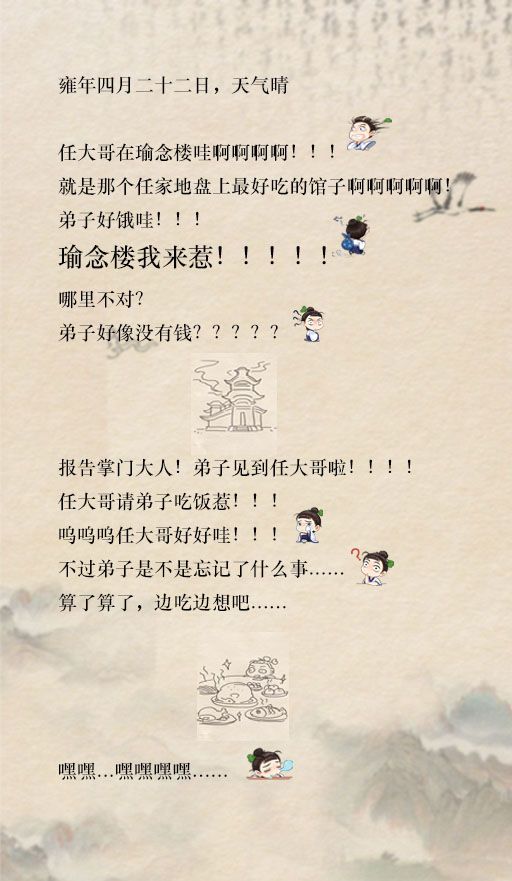 雍年四月二十二日，天气晴
任大哥在瑜念楼哇啊啊啊啊！！！
就是那个任家地盘上最好吃的馆子啊啊啊啊啊！
弟子好饿哇！！！
瑜念楼我来惹！！！！！
哪里不对？
弟子好像没有钱？？？？？
报告掌门大人！弟子见到任大哥啦！！！！
任大哥请弟子吃饭惹！！！
呜呜呜任大哥好好哇！！！
不过弟子是不是忘记了什么事……
算了算了，边吃边想吧……
嘿嘿…嘿嘿嘿嘿……